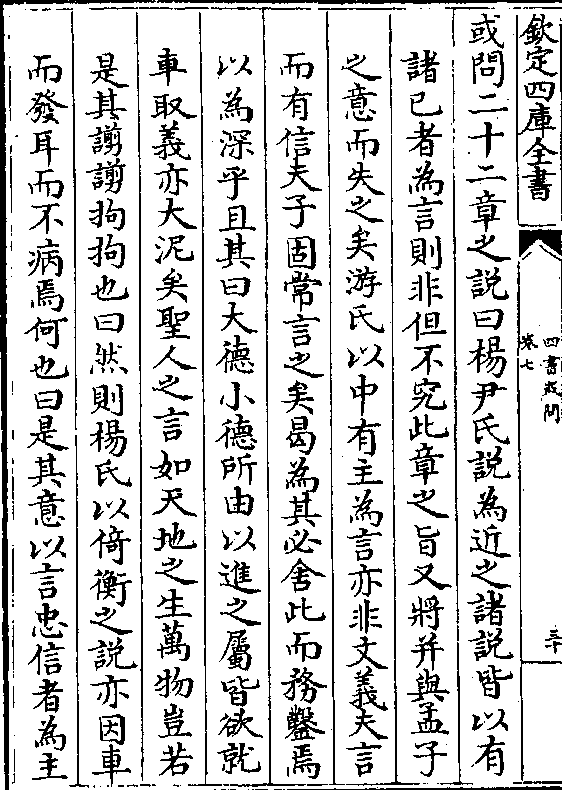 欽定四庫全書
四書或問
卷七
三十
或問二十二章之説曰楊尹氏説為近之諸説皆以有
諸已者為言則非但不究此章之旨又將并與孟子
之意而失之矣游氏以中有主為言亦非文義夫言
而有信夫子固常言之矣曷為其必舍此而務鑿焉
以為深乎且其曰大德小德所由以進之屬皆欲就
車取義亦大泥矣聖人之言如天地之生萬物豈若
是其謭謭拘拘也曰然則楊氏以倚衡之説亦因車
而發耳而不病焉何也曰是其意以言忠信者為主